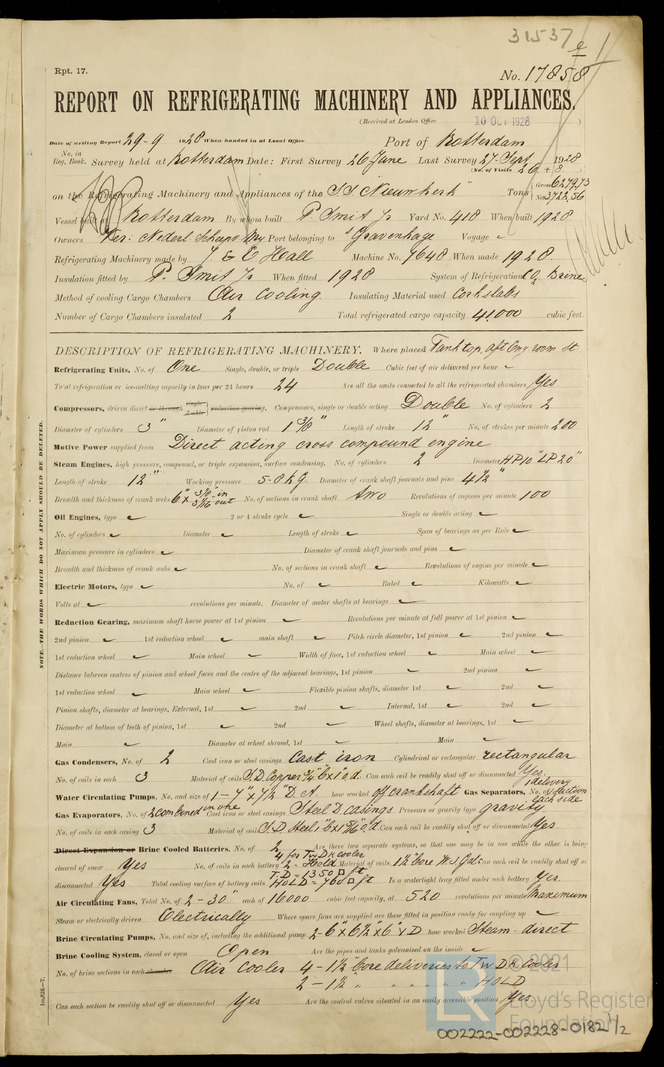 31537
Rpt. 17.
No. 17858
REPORT ON REFRIGERATING MACHINERY AND APPLIANCES.
(Received at London Office 10 OCT 1928 )
Date of writing Report 29-9 1928 When handed in at Local Office Port of Rotterdam
No. in Reg. Book. Survey held at Rotterdam Date: First Survey 26 June Last Survey 27 Sept 1928
(No. of Visits 26 + 8
on the Refrigerating Machinery and Appliances of the "SS Nieuwkerk" Tons Gross 6279,73 Net 3722,56
Vessel built at Rotterdam By whom built P. Smit Jr Yard No. 418 When built 1928
Owners Ver: Nederl Scheepv My Port belonging to 's Gravenhage Voyage ✓
Refrigerating Machinery made by J & E Hall Machine No. 9648 When made 1928.
Insulation fitted by P. Smit Jr When fitted 1928 System of Refrigeration CO2 Brine
Method of cooling Cargo Chambers Air Cooling. Insulating Material used Cork slabs
Number of Cargo Chambers insulated 2 Total refrigerated cargo capacity 41,000 cubic feet.
DESCRIPTION OF REFRIGERATING MACHINERY. Where placed Tank top, aft Eng. room St
Refrigerating Units, No. of One Single, double, or triple Double Cubic feet of air delivered per hour ✓
Total refrigeration or ice-melting capacity in tons per 24 hours 24 Are all the units connected to all the refrigerated chambers Yes
Compressors, driven direct or through single double reduction gearing. Compressors, single or double acting Double No. of cylinders 2
Diameter of cylinders 3" Diameter of piston rod 1 3/8" Length of stroke 12" No. of strokes per minute 200
Motive Power supplied from Direct acting cross compound engine
Steam Engines, high pressure, compound, or triple expansion, surface condensing. No. of cylinders 2 Diameter HP 10" LP 20"
Length of stroke 12" Working pressure Diameter of crank shaft journals and pins 4 1/2"
Breadth and thickness of crank webs No. of sections in crank shaft two Revolutions of engines per minute 100
Oil Engines, type ✓ 2 or 4 stroke cycle ✓ Single or double acting ✓
No. of cylinders ✓ Diameter ✓ Length of stroke ✓ Span of bearings as per Rule ✓
Maximum pressure in cylinders ✓ Diameter of crank shaft journals and pins ✓
Breadth and thickness of crank webs ✓ No. of sections in crank shaft ✓ Revolutions of engine per minute ✓
Electric Motors, type ✓ No. of ✓ Rated ✓ Kilowatts ✓
Volts at ✓ revolutions per minute. Diameter of motor shafts at bearings ✓
Reduction Gearing, maximum shaft horse power at 1st pinion ✓ Revolutions per minute at full power at 1st pinion ✓
2nd pinion ✓ 1st reduction wheel ✓ main shaft ✓ Pitch circle diameter, 1st pinion ✓ 2nd pinion ✓
1st reduction wheel ✓ Main wheel ✓ Width of face, 1st reduction wheel ✓ Main wheel ✓
Distance between centres of pinion and wheel faces and the centre of the adjacent bearings, 1st pinion ✓ 2nd pinion ✓
1st reduction wheel ✓ Main wheel ✓ Flexible pinion shafts, diameter 1st ✓ 2nd ✓
Pinion shafts, diameter at bearings, External, 1st ✓ 2nd ✓ Internal, 1st ✓ 2nd ✓
Diameter at bottom of teeth of pinion, 1st ✓ 2nd ✓ Wheel shafts, diameter at bearings, 1st ✓
Main ✓ Diameter at wheel shroud, 1st ✓ Main ✓
Gas Condensers, No. of 2 Cast iron or steel casings Cast iron Cylindrical or rectangular rectangular
No. of coils in each 3 Material of coils S.D. Copper Can each coil be readily shut off or disconnected Yes.
Water Circulating Pumps, No. and size of 1 - 7" x 7 1/2" D.A. how worked off crankshaft Gas Separators, No. of 1 delivery 1 suction each side
Gas Evaporators, No. of 2 combined in one Cast iron or steel casings Steel D. casings Pressure or gravity type gravity
No. of coils in each casing 3 Material of coils S.D. Steel Can each coil be readily shut off or disconnected Yes
Direct Expansion or Brine Cooled Batteries, No. of 2 Are there two separate systems, so that one may be in use while the other is being
cleared of snow Yes No. of coils in each battery 4 for Tw Dk cooler 2 - Hold Material of coils 1 1/2" bore Can each coil be readily shut off or
disconnected Yes Total cooling surface of battery coils T.D - 1350 □ ft HOLD - 760 □ ft Is a watertight tray fitted under each battery Yes.
Air Circulating Fans, Total No. of 2 - 30" each of 16000 cubic feet capacity, at 520 revolutions per minute Maximum
Steam or electrically driven Electrically Where spare fans are supplied are these fitted in position ready for coupling up ✓
Brine Circulating Pumps, No. and size of, including the additional pump 2 - 6" x 6 1/2" x 6" x D how worked Steam - direct
Brine Cooling System, closed or open Open Are the pipes and tanks galvanised on the inside ✓
No. of brine sections in each chamber Air Cooler 4 - 1 1/2" bore deliveries to Tw Dk Cooler
2 - 1 1/2 " " " " HOLD
Can each section be readily shut off or disconnected Yes Are the control valves situated in an easily accessible position Yes
NOTE.—THE WORDS WHICH DO NOT APPLY SHOULD BE DELETED.
© 2021
Lloyd's Register
Foundation
002222-002228-0182 1/2